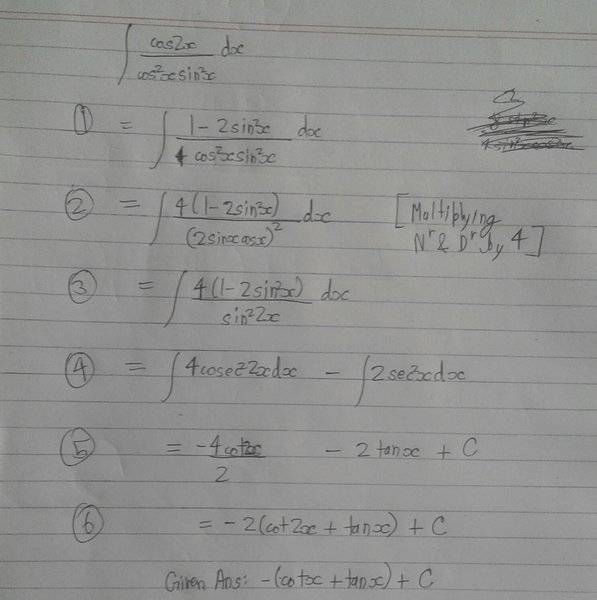 ∫ cos2x / cos²x sin²x dx
① = ∫ 1 - 2sin²x / cos²x sin²x dx
② = ∫ 4(1 - 2sin²x) / (2sinxcosx)² dx [Multiplying
Nʳ & Dʳ by 4]
③ = ∫ 4(1 - 2sin²x) / sin²2x dx
④ = ∫ 4cosec²2xdx - ∫ 2sec²xdx
⑤ = -4cot2x / 2 - 2tanx + C
⑥ = -2(cot2x + tanx) + C
Given Ans: -(cotx + tanx) + C